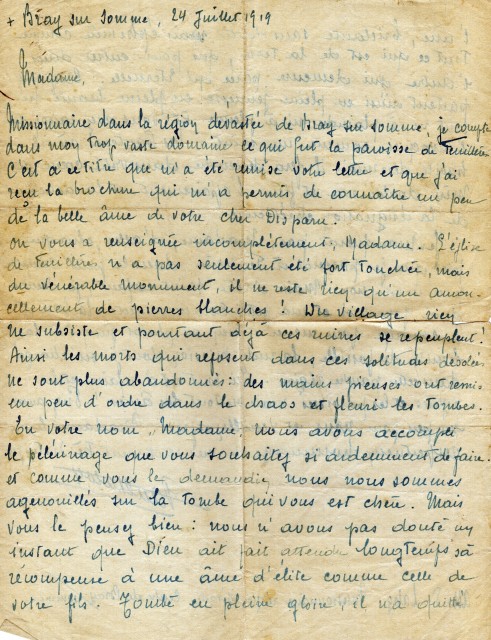 + Bray sur Somme, 24 Juillet 1919
Madame,
Missionnaire dans la région devastée de Bray sur Somme, je compte
dans mon trop vaste domaine ce qui fut la paroisse de Feuillères
C'est à ce titre que m'a été remise votre lettre et que j'ai
reçu la brochure qui m'a permis de connaître un peu
de la belle âme de votre cher Disparu.
On vous a renseignée incomplètement, Madame. L'église
de Feuillères n'a pas seulement été fort touchée, mais
du vénérable monument, il ne reste rien qu'un amon-
cellement de pierres blanches ! Du village rien
ne subsiste et pourtant déjà ces ruines se repeuplent !
Ainsi les morts qui reposent dans ces solitudes désolées
ne sont plus abandonnés : des mains pieuses ont remis
un peu d'ordre dans le chaos et fleuri les tombes.
En votre nom, Madame, nous avons accompli
le pélerinage que vous souhaitez si ardemment de faire.
et comme vous le demandiez nous nous sommes
agenouillés sur la tombe qui vous est chère. Mais
vous le pensez bien : nous n'avons pas douté un
instant que Dieu ait fait attendre longtemps sa
récompense à une âme d'élite comme celle de
votre fils. Tombé en pleine gloire, il n'a quitté